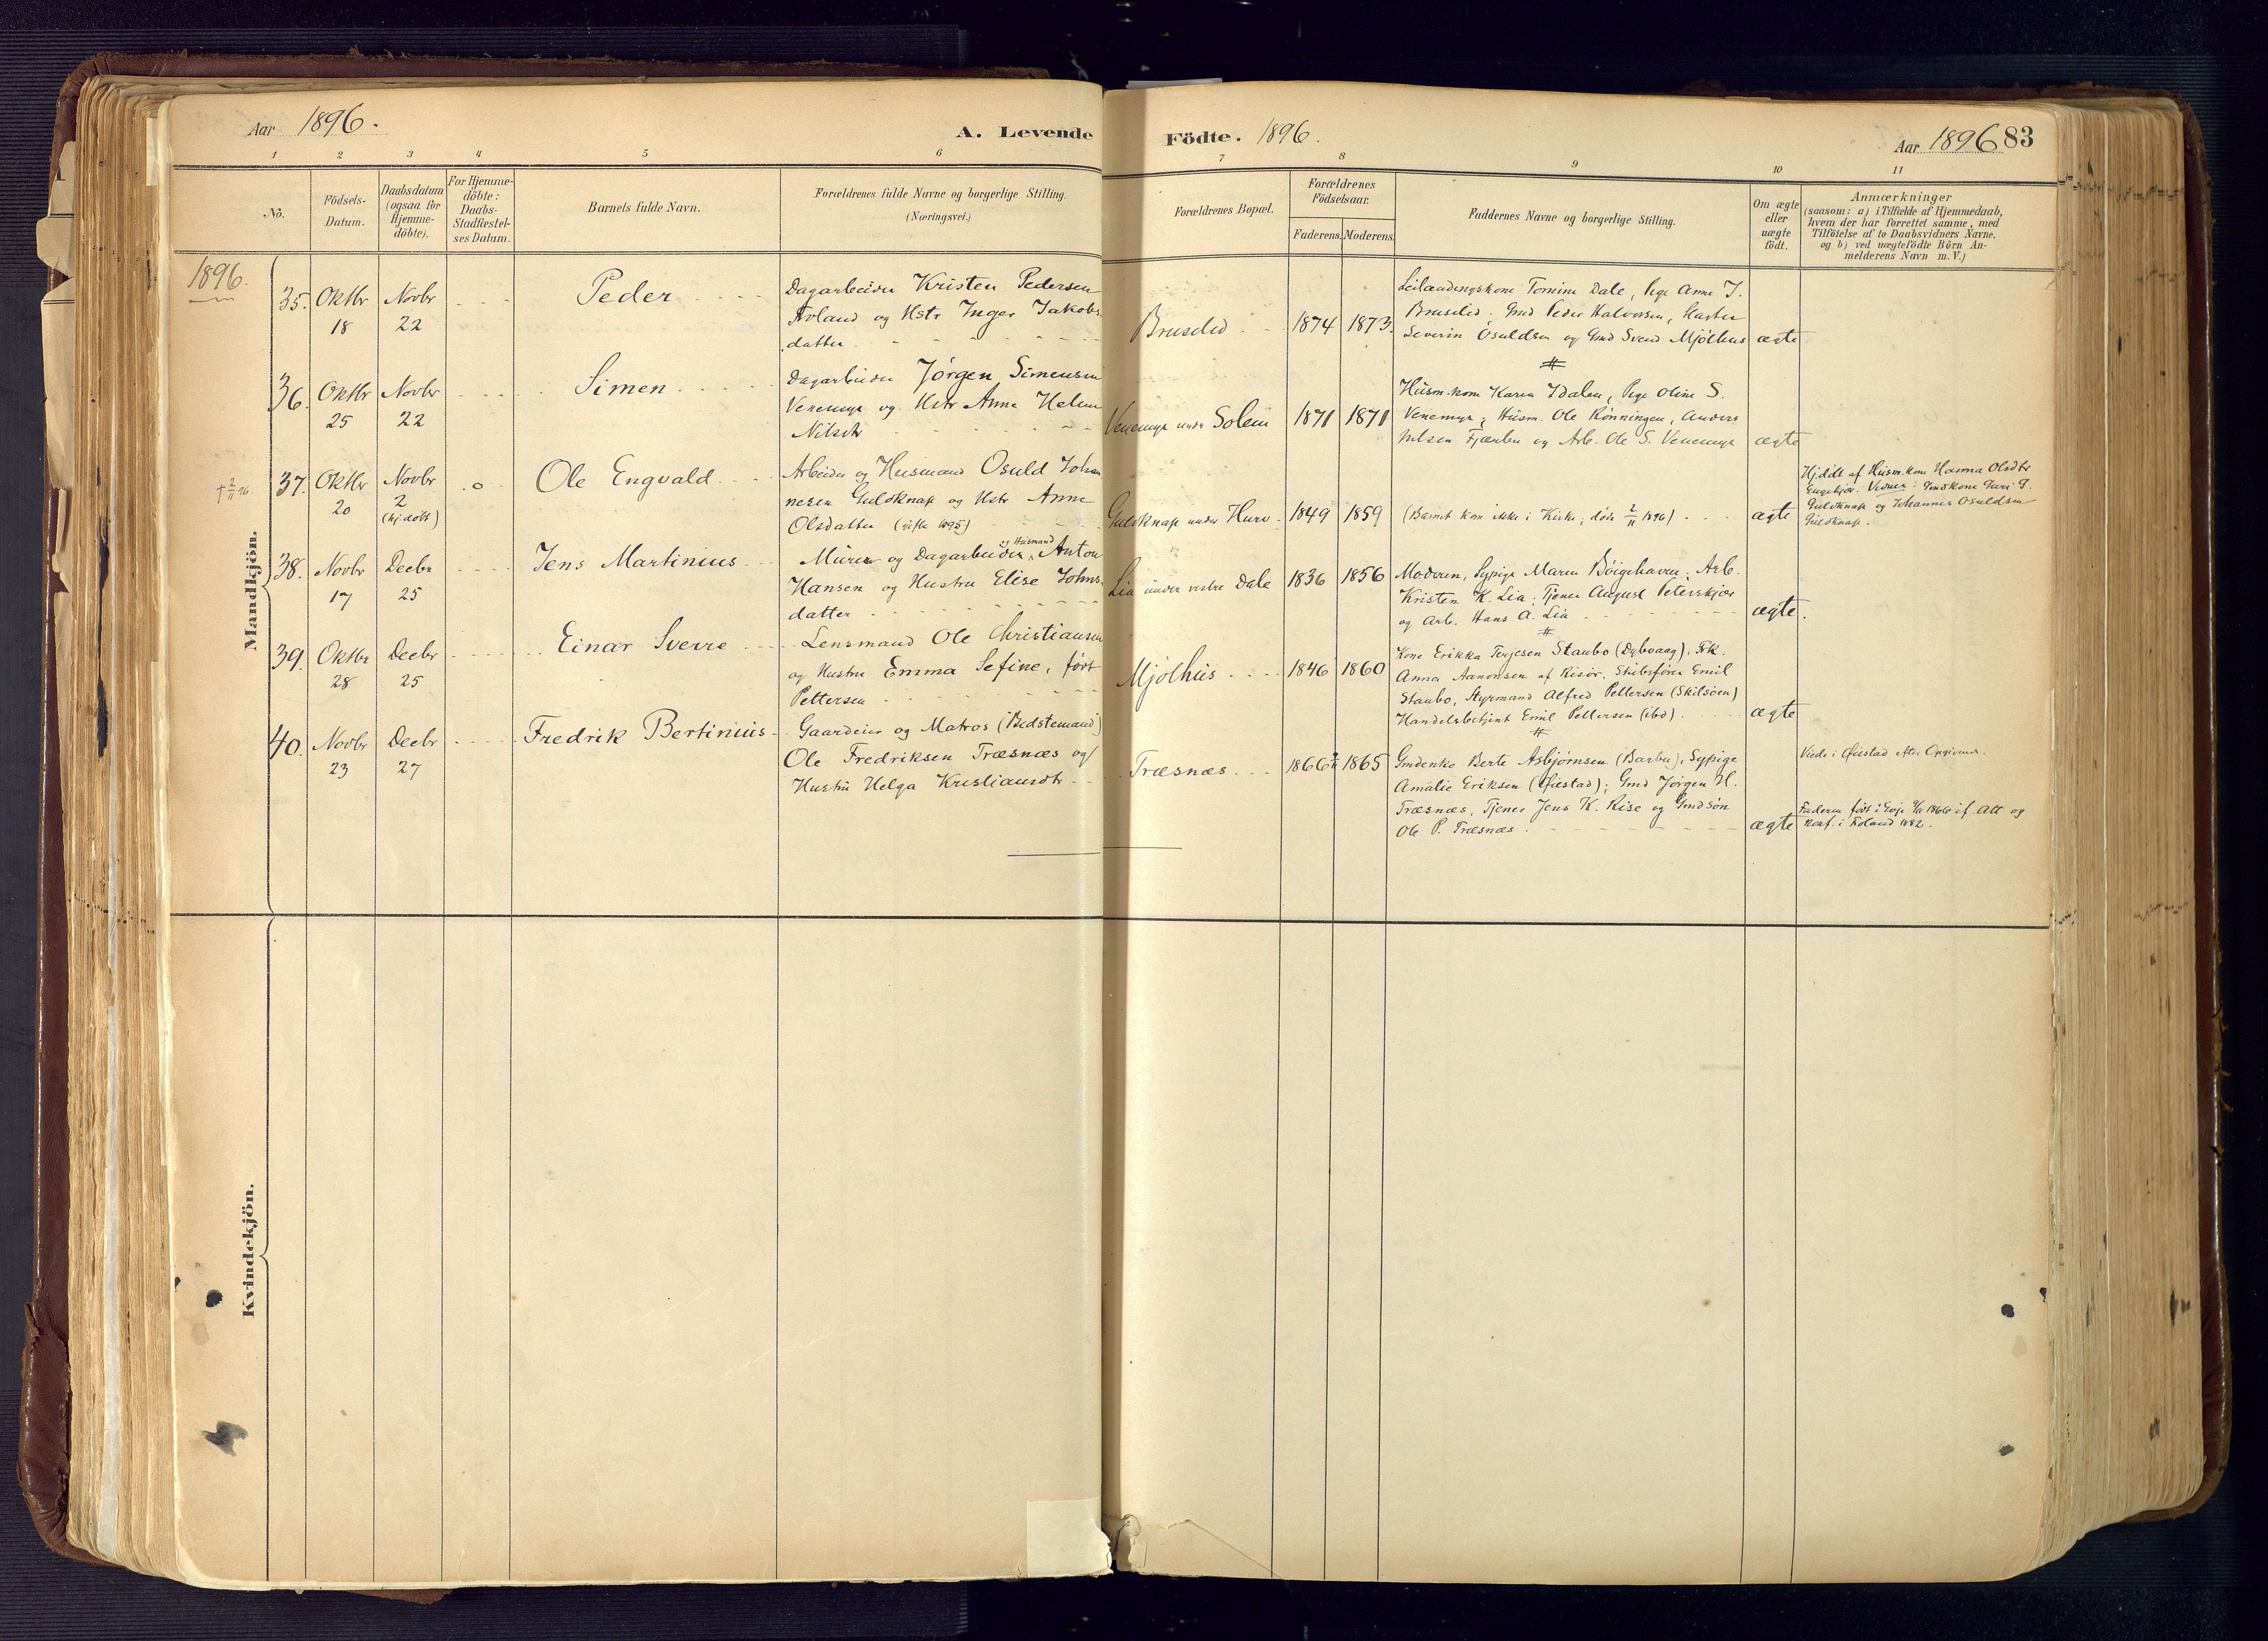 Aar 1896.
A. Levende
Födte. 1896.
Aar 1896 83
1 2 3 4 5 6 7 8 9 10 11
No.
Födsels-
Datum.
Daabsdatum
(ogsaa for
Hjemme-
döbte).
For Hjemme-
döbte:
Daabs-
Stadfæstel-
ses Datum.
Barnets fulde Navn.
Forældrenes fulde Navne og borgerlige Stilling.
(Næringsvei.)
Forældrenes Bopæl.
Forældrenes
Födselsaar.
Faderens. Moderens.
Faddernes Navne og borgerlige Stilling.
Om ægte
eller
uægte
födt.
Anmærkninger
(saasom: a) i Tilfælde af Hjemmedaab,
hvem der har forrettet samme, med
Tilföielse af to Daabsvidners Navne.
og b) ved uægtefödte Börn An-
melderens Navn m. V.)
1896.
Mandkjön.
35. Oktbr
18
Novbr
22
Peder
Dagarbeider Kristen Pedersen
og Hstr Inger Jakobs
datter
Bruselid
1874 1873.
Leilændingskone Tomine Dale, Pige Anne J.
Bruselid. Gmd Peder Halvorsen,
Severin Osuldsen og Gmd Svend Mjölhus
ægte
36. Oktbr
25
Novbr
22
Simen
Dagarbeider Jörgen Simensen
Venemyr og Hstr Anne Helene
Nilsdtr
Venemyr under Solem
1871 1871
Husm.kone Karen Dalen, Pige Oline S.
Venemyr; Husm. Ole Rönningen, Anders
Fjærbu og Arb. Ole S. Venemyr
ægte
† 2/11 96.
37. Oktbr
20
Novbr
2
(hj.döbt)
o
Ole Engvald
Arbeider og Husmand Osuld Johan
nesen Guldknap og Hstr Anne
Olsdatter (vifte 1895)
Guldknap under Hurv
1849 1859
(Barnet kom ikke i Kirke; döde 2/11 1896)
ægte
Hj.döbt af Husm.kone Hanna Olsdtr
Vidner: Gmdkone Guri G.
Guldknap og Johannes Osuldsen
Guldknap.
38. Novbr
17
Decbr
25
Jens Martinius
Murer og Dagarbeider og Husmand Anton
Hansen og Hustru Elise Johns
datter
Lia under vestre Dale
1836 1856
Moderen, Sypige Maren Böigehaven; Arb.
Kristen K. Lia; Tjener August Peterskjær
og Arb. Hans A. Lia
ægte.
39. Oktbr
28
Decbr
25
Einar Sverre
Lensmand Ole Christiansen
og Hustru Emma Sefine, födt
Pettersen
Mjölhus
1846 1860
Kone Erikka Terjesen Staubo (Dybvaag), Frk.
Anna Aanonsen af Risör, Skibsförer Emil
Staubo, Styrmand Alfred Pettersen (Skilsöen)
Handelsbetjent Emil Pettersen (ibd)
ægte
40. Novbr
23
Decbr
27
Fredrik Bertinius
Gaardeier og Matros (Bedstemand)
Ole Fredriksen Træsnæs og
Hustru Helga Kristiansdtr
Træsnæs
1866 1865
Gmdenke Berte Asbjörnsen (Barbu), Sypige
Amalie Eriksen (Öiestad); Gmd Jörgen H.
Træsnæs, Tjener Jens K. Rise og Gmdsön
Ole P. Træsnæs
ægte
Viede i Öiestad efter Opgivende.
Faderen födt i Evje 1866 if. Att og
Konf. i Froland 1882.
Kvindekjön.